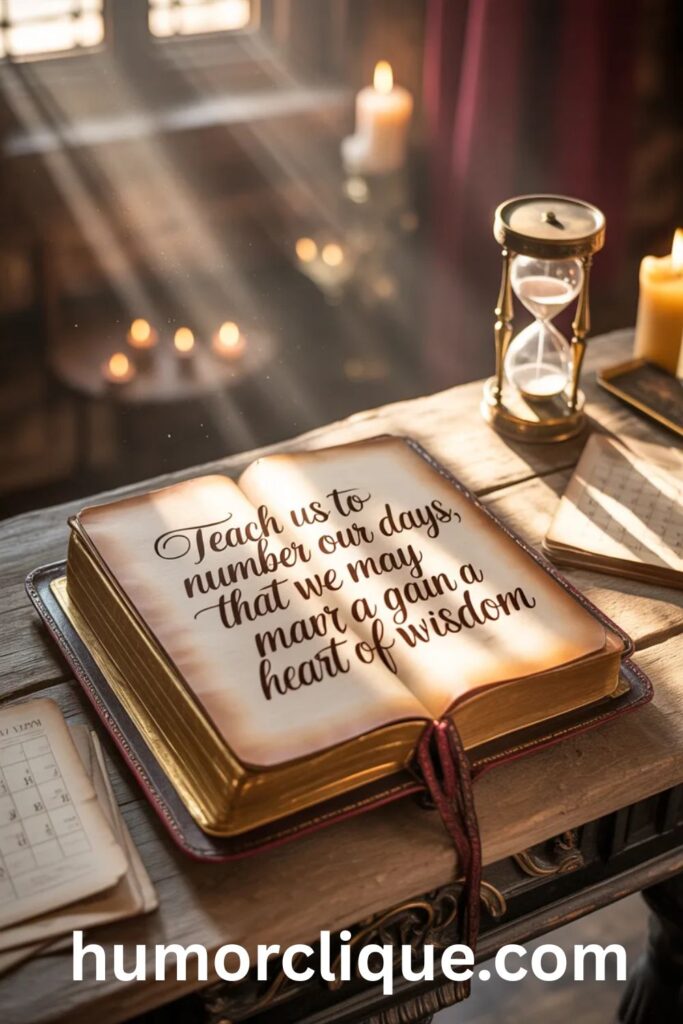 Teach us to
number our days,
that we may
mavr a gain a
heart of wisdom
humorclique.com